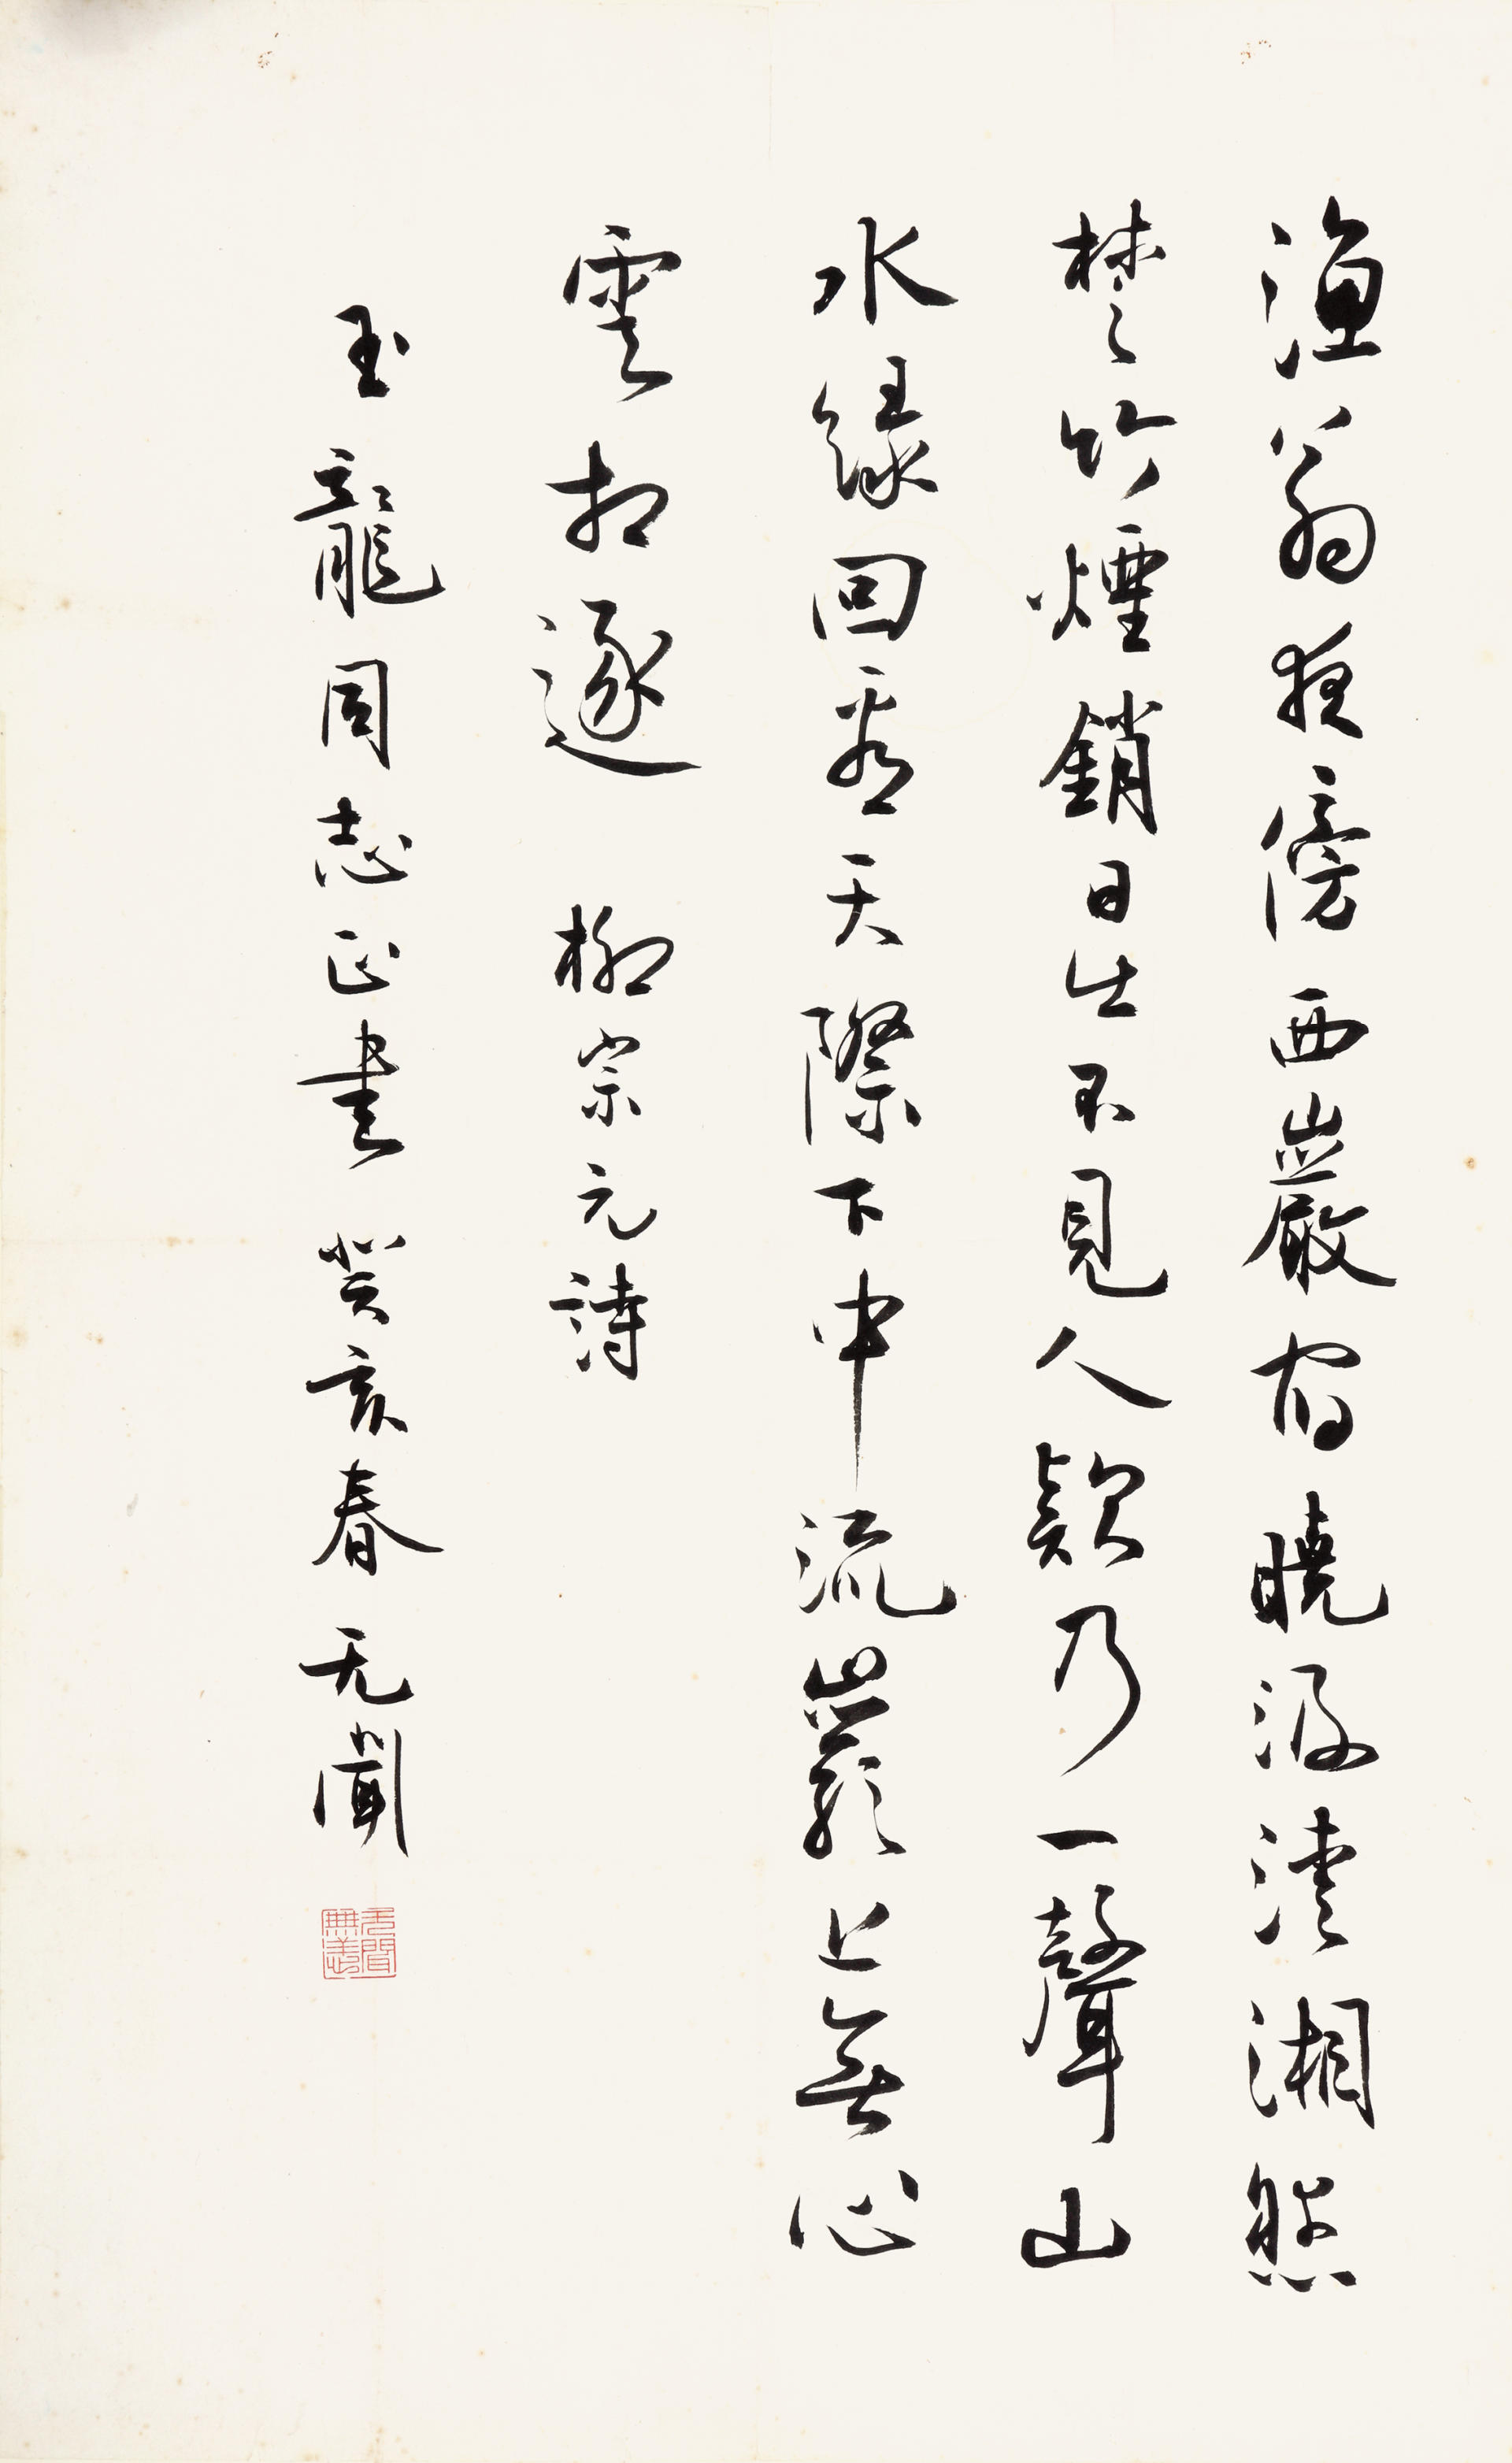 漁翁夜傍西巖宿曉汲清湘然
楚竹煙銷日出不見人欸乃一聲山
水綠回看天際下中流巖上無心
雲相逐 柳宗元詩
玉龍同志正書 癸亥春 无聞
无聞無恙